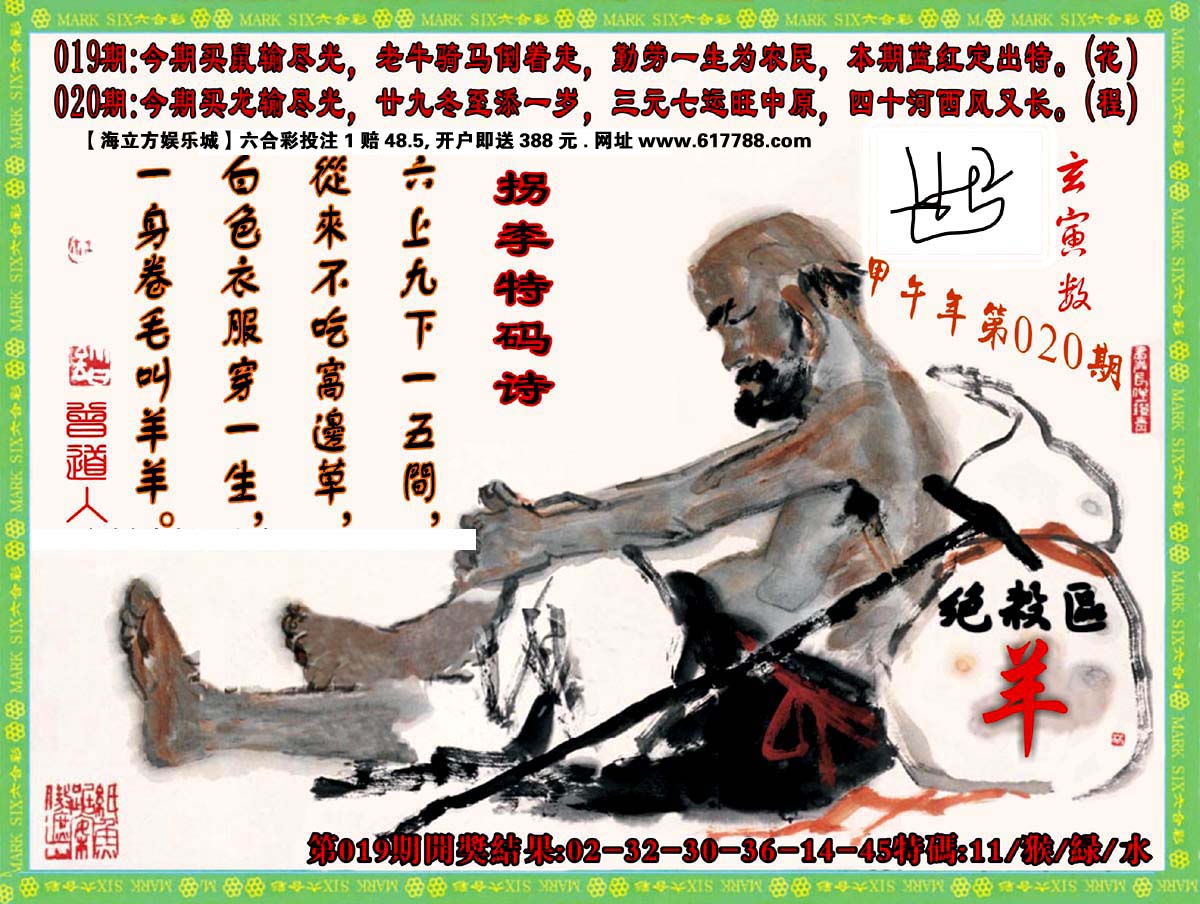 MARK SIX六合彩
019期:今期买鼠输尽光，老牛骑马倒着走，勤劳一生为农民，本期蓝红定出特。(花)
020期:今期买龙输尽光，廿九冬至添一岁，三元七运旺中原，四十河西风又长。(程)
【海立方娱乐城】六合彩投注 1 赔 48.5, 开户即送 388 元 . 网址 www.617788.com
玄寅数
甲午年第020期
拐李特码诗
六上九下一五間，
從來不吃窩邊草，
白色衣服穿一生，
一身卷毛叫羊羊。
曾道人
绝殺区
羊
第019期開獎結果:02-32-30-36-14-45特碼:11/猴/緑/水